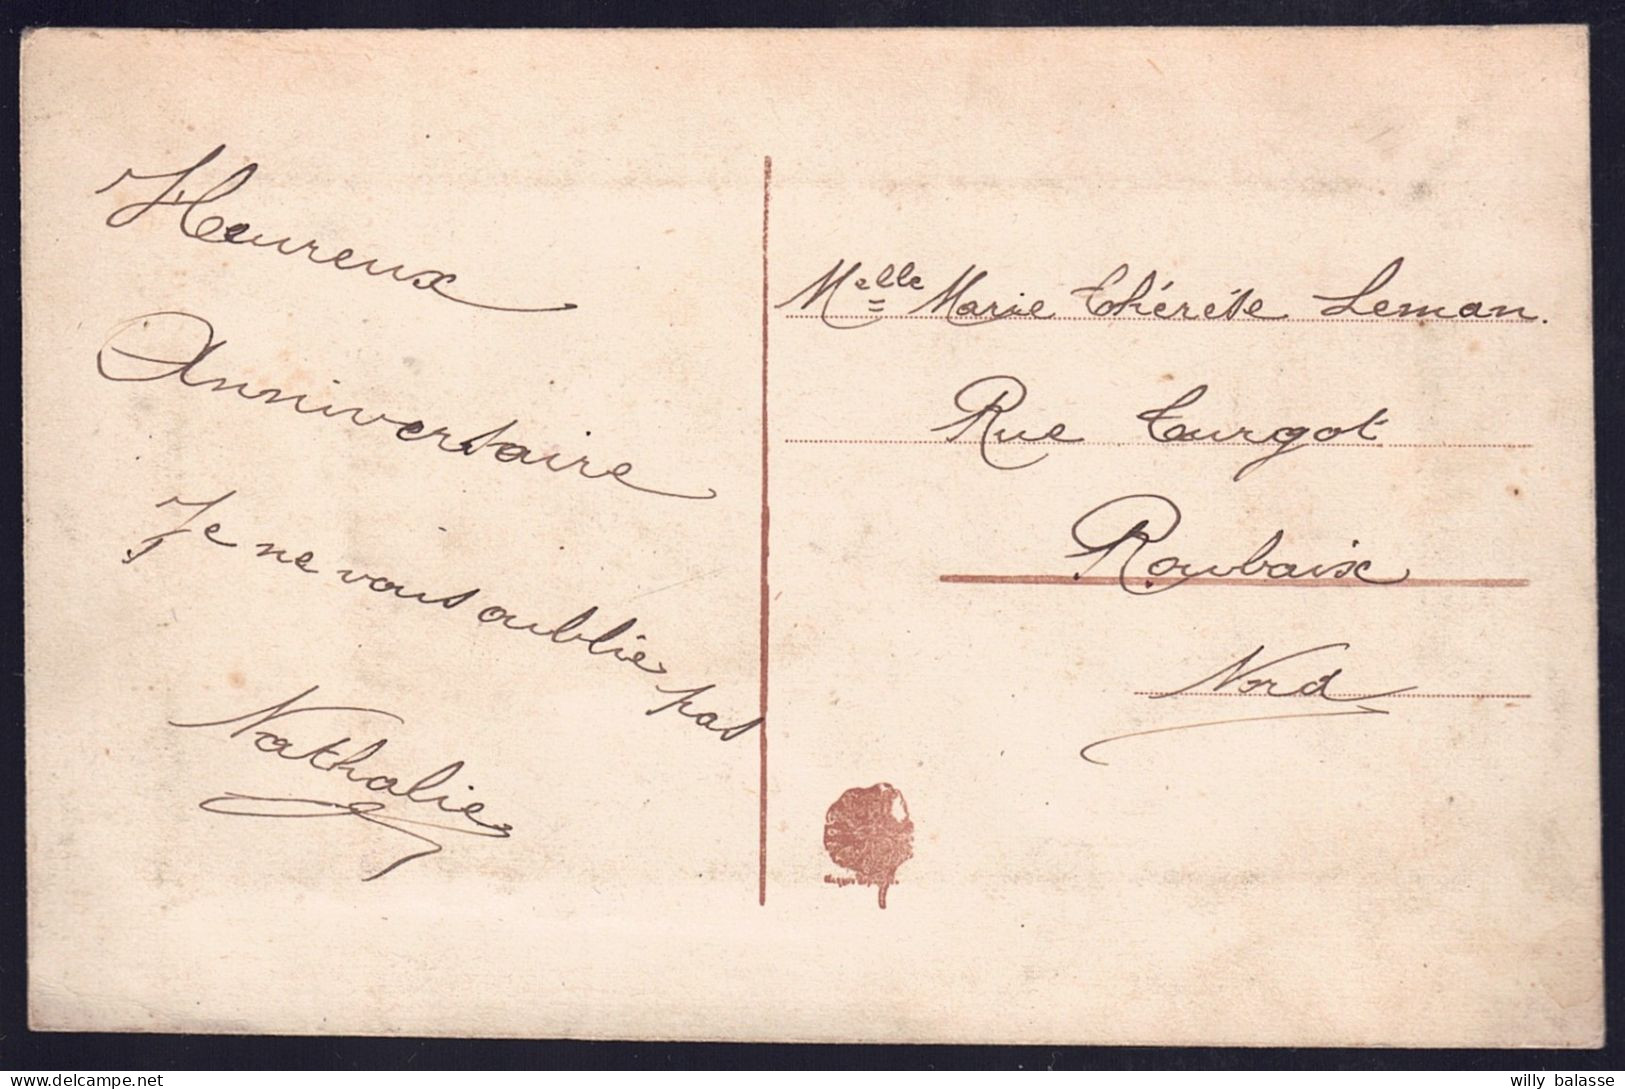 Heureux
Anniversaire
Je ne vous oublie pas
Nathalie
Melle Marie Thérèse Leman.
Rue Turgot
Roubaix
Nord
willy balasse